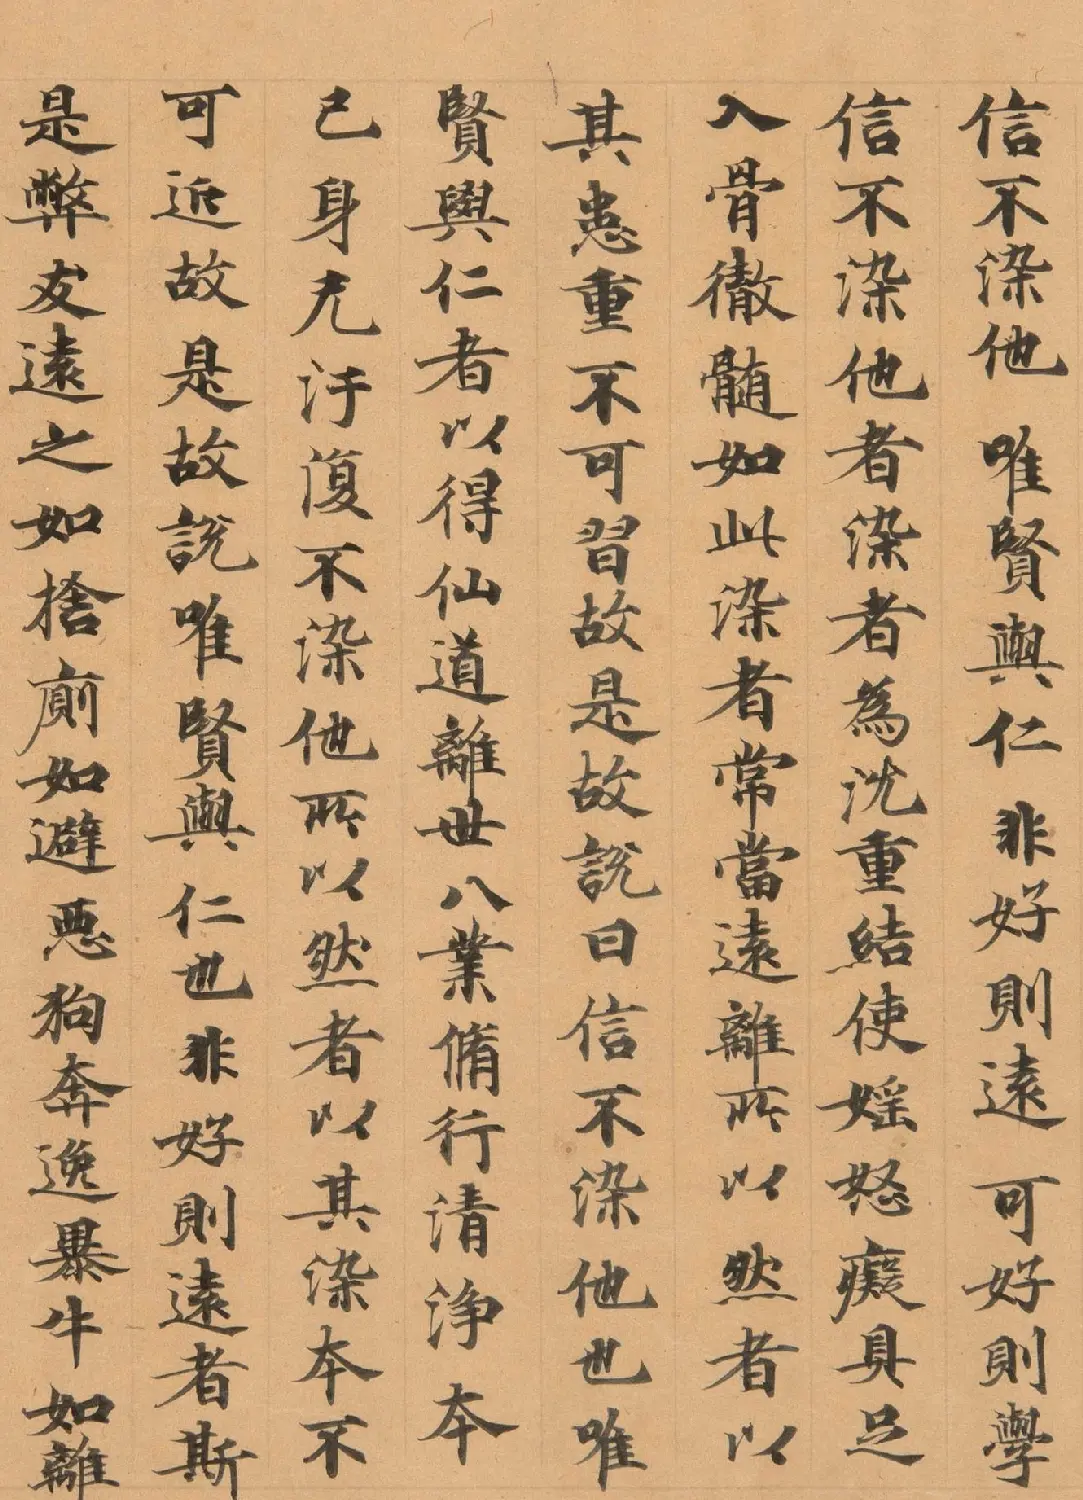 信不染他 唯賢與仁 非好則遠 可好則學
信不染他者染者為沈重結使婬怒癡具足
入骨徹髓如此染者常當遠離所以然者以
其患重不可習故是故說曰信不染他也唯
賢與仁者以得仙道離世八業脩行清淨本
已身无汙復不染他所以然者以其染本不
可近故是故說唯賢與仁也非好則遠者斯
是弊友遠之如捨廁如避惡狗奔逸暴牛如離